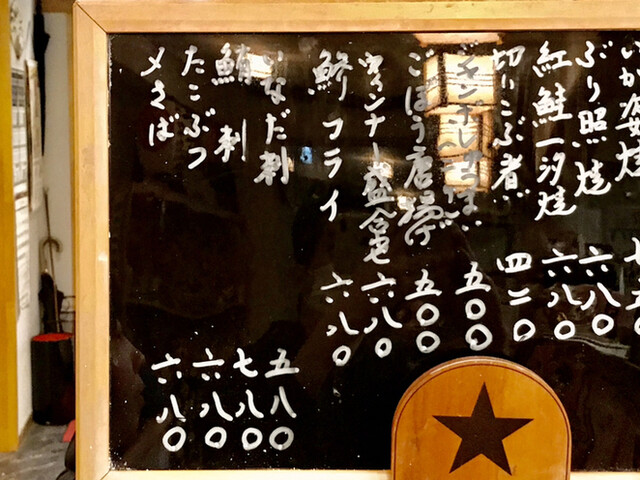 いか姿焼
ぶり照焼 六八〇
紅鮭一汐焼 六八〇
切りこぶ煮 四二〇
ジャンボしゅうまい 五〇〇
ごぼう唐揚げ 五〇〇
ウインナー盛合せ 六八〇
鯵フライ 六八〇
いなだ刺 五八〇
鮪刺 七八〇
たこぶつ 六八〇
〆さば 六八〇